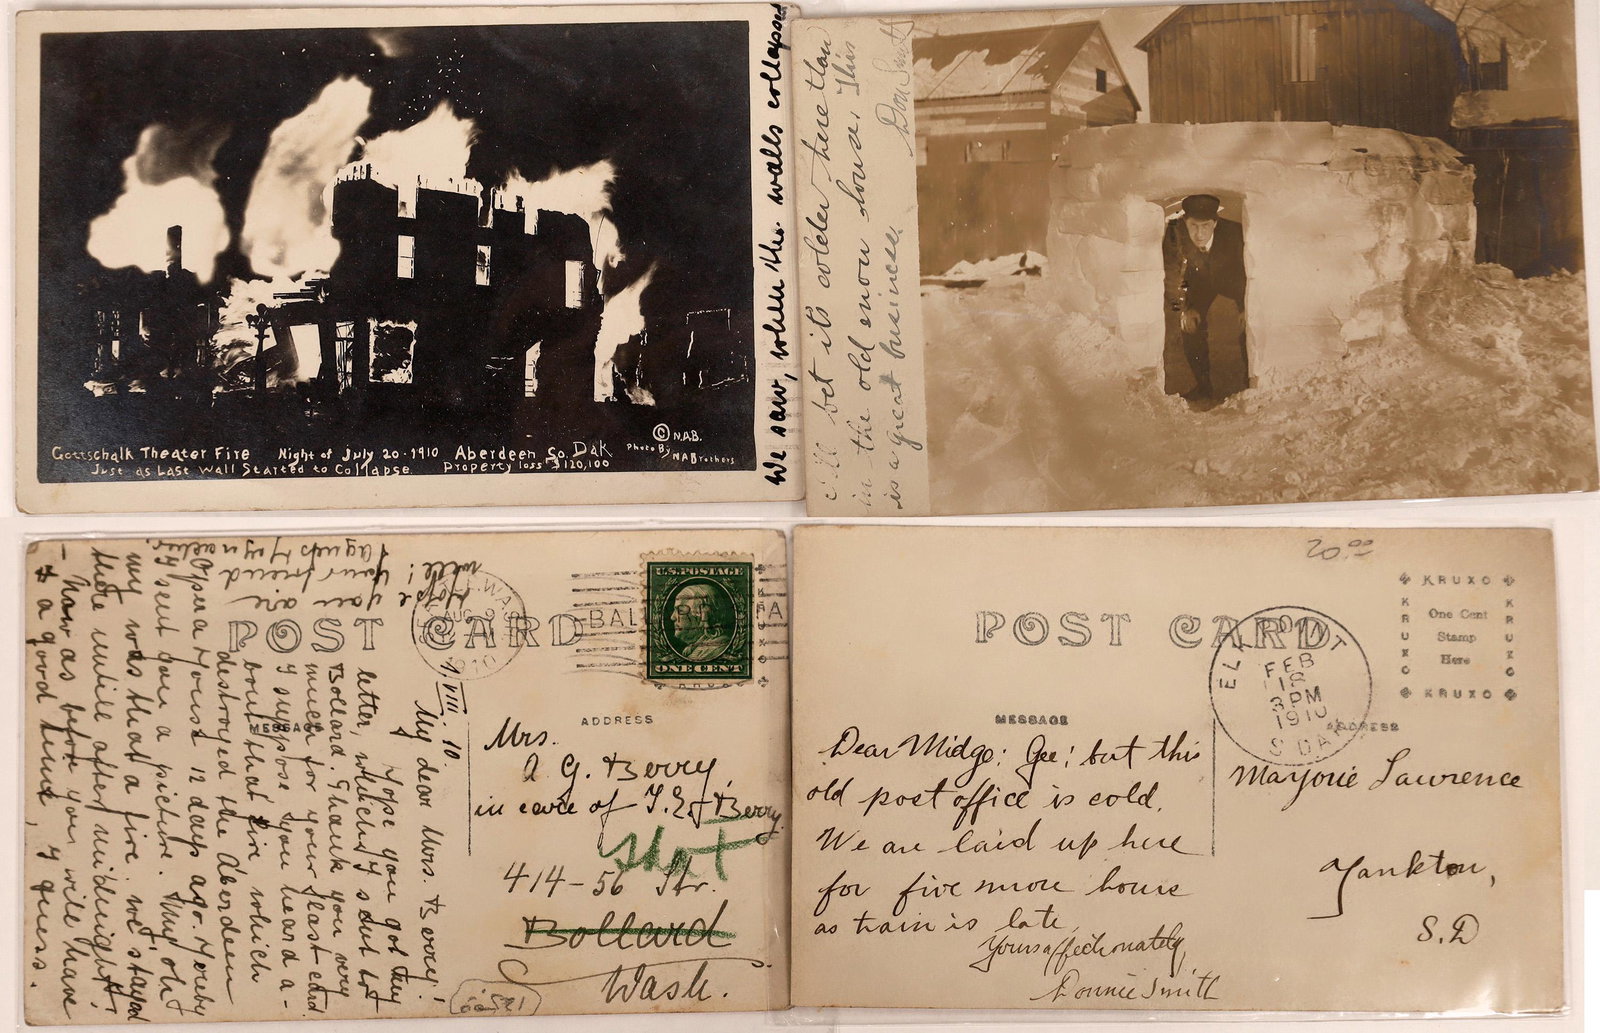 Gottschalk Theater Fire Night of July 20-1910 Aberdeen So. Dak
Just as Last Wall Started to Collapse. Property loss $120,100
© N.A.B.
Photo By
N A Brothers
We saw, when the walls collapsed
I'll bet it's colder here than
in the old snow house. This
is a great business.
Don Smith
POST CARD
MESSAGE
ADDRESS
U.S. POSTAGE
ONE CENT
AUG
1910
BALLARD STA
VIII. 10.
My dear Mrs. Berry!
Hope you got my
letter, which I sent to
Bollard. Thank you very
much for your last card.
I suppose you heard a-
bout that fire which
destroyed the Aberdeen
Opera House 12 days ago. Hereby
I sent you a picture. My, oh!
my was that a fire. We stayed
there untill after midnight!
- Now as before you will have
a good time, I guess.
Hope you are
well! Your friend
Mrs.
A. G. Berry,
in care of T. E. Berry
414-56 Str.
Bollard
Wash.
20.00
POST CARD
KRUXO
KRUXO
One Cent
Stamp
Here
KRUXO
KRUXO
ELK POINT
FEB
1 PM
1910
S DAK
MESSAGE
ADDRESS
Dear Midge: Gee! but this
old post office is cold.
We are laid up here
for five more hours
as train is late.
Yours affectionately,
Donnie Smith
Marjorie Lawrence
Yankton,
S.D